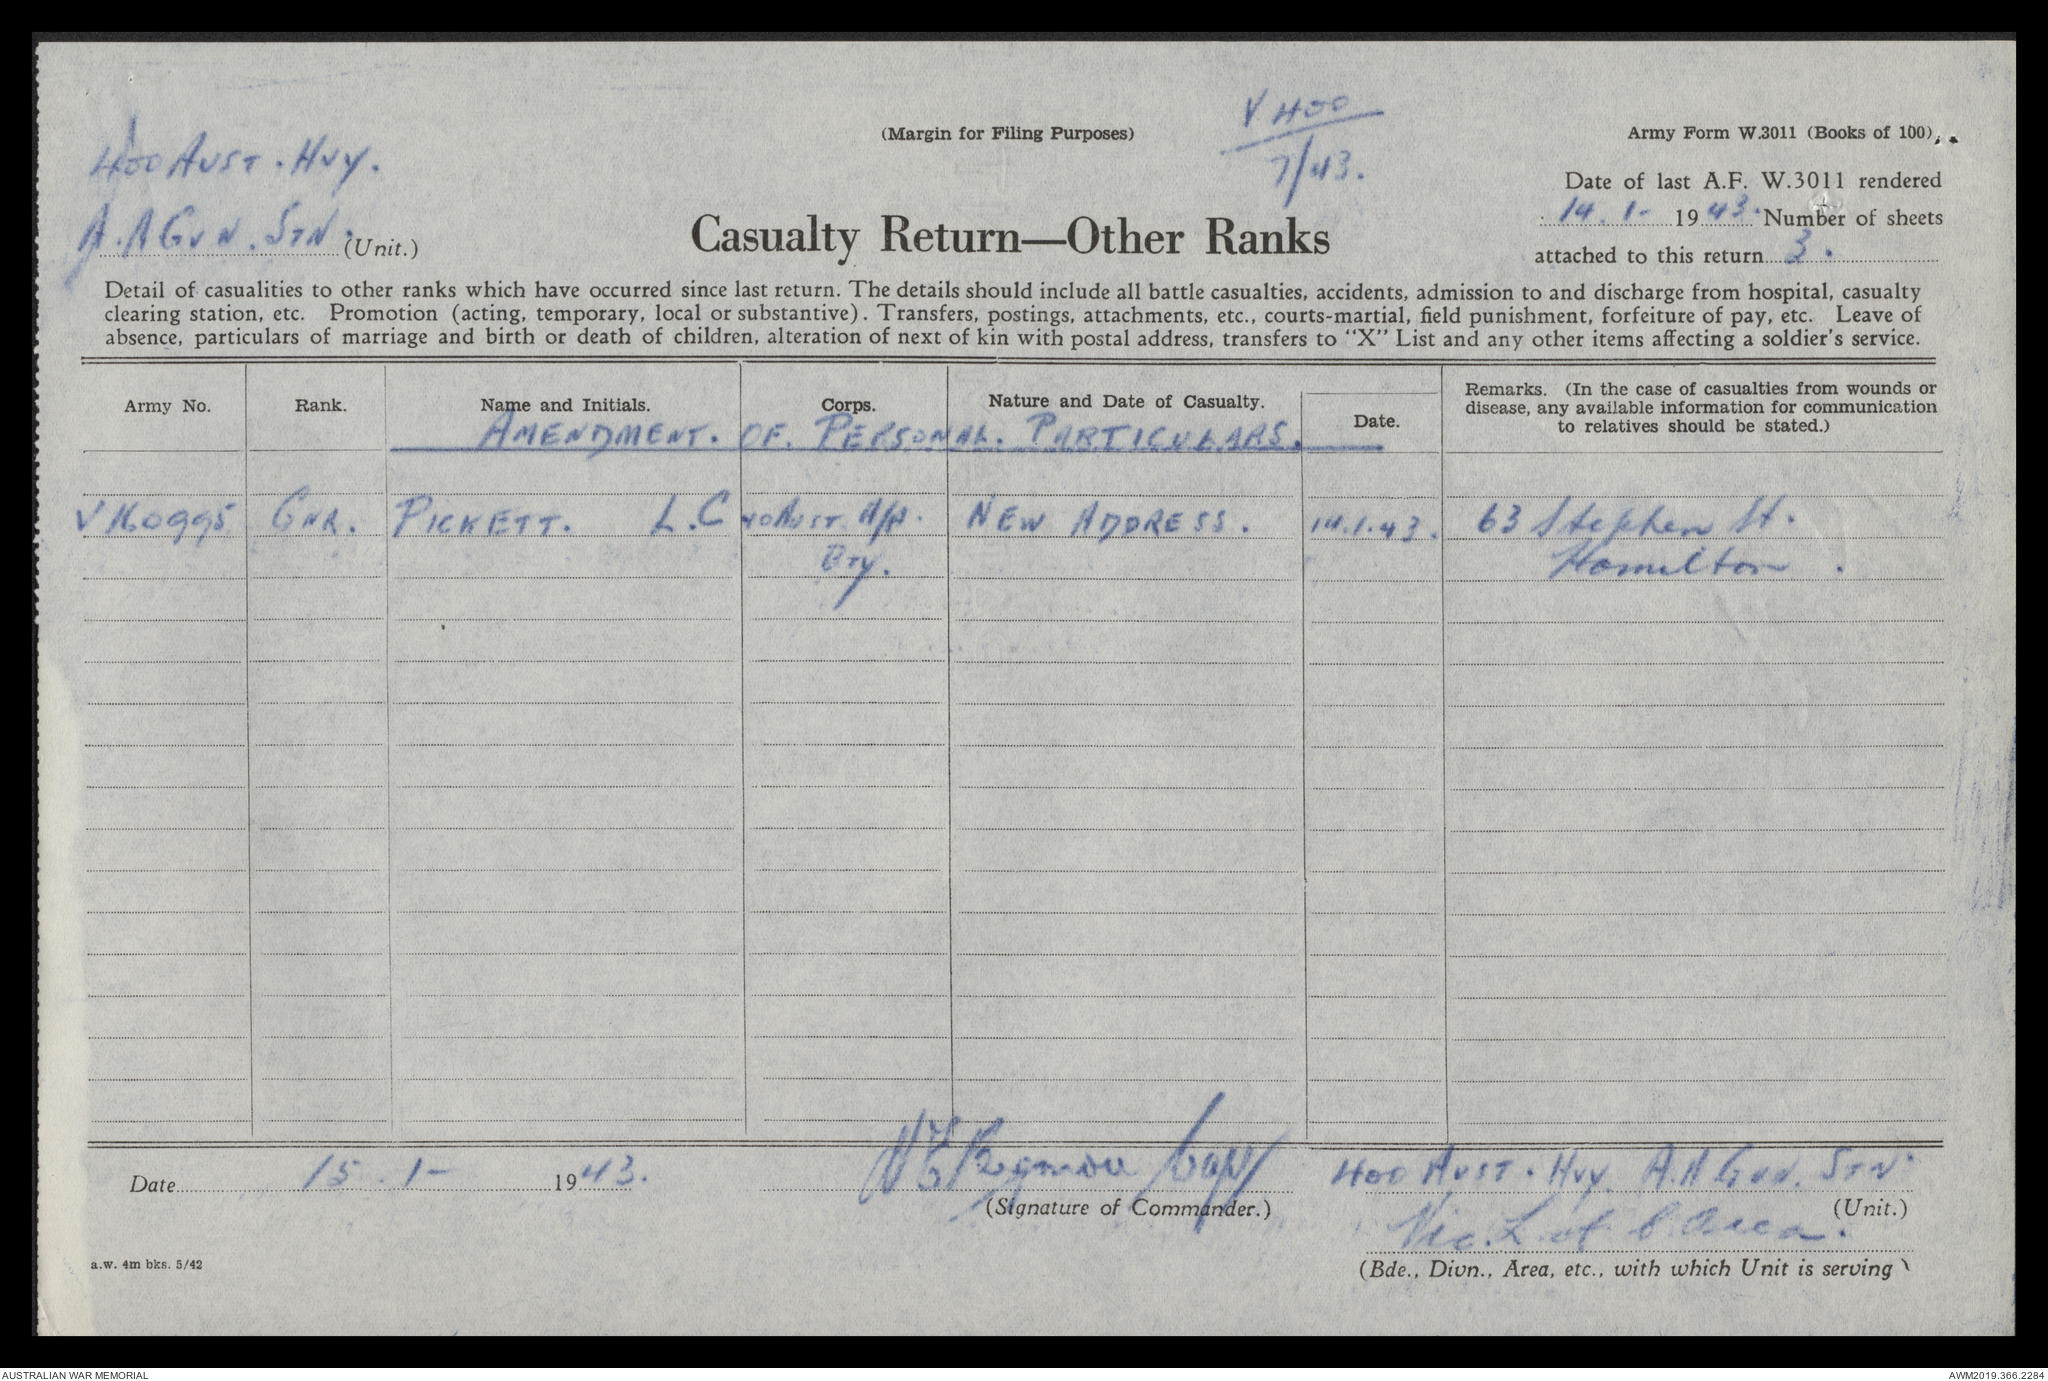 V 400
7/43.
(Margin for Filing Purposes)
Army Form W.3011 (Books of 100)
400 AUST. HVY.
A.A GUN. STN. (Unit.)
Date of last A.F. W.3011 rendered
14.1- 1943. Number of sheets
attached to this return 3.
Casualty Return—Other Ranks
Detail of casualities to other ranks which have occurred since last return. The details should include all battle casualties, accidents, admission to and discharge from hospital, casualty
clearing station, etc. Promotion (acting, temporary, local or substantive). Transfers, postings, attachments, etc., courts-martial, field punishment, forfeiture of pay, etc. Leave of
absence, particulars of marriage and birth or death of children, alteration of next of kin with postal address, transfers to "X" List and any other items affecting a soldier's service.
Army No. Rank. Name and Initials. Corps. Nature and Date of Casualty. Date. Remarks. (In the case of casualties from wounds or
disease, any available information for communication
to relatives should be stated.)
AMENDMENT. OF. PERSONAL. PARTICULARS.
V160995 GNR. PICKETT. L.C AUST A/A. NEW ADDRESS. 14.1.43. 63 Stephen St.
BTY. Hamilton.
Date 15.1- 1943. Capt 400 AUST. HVY. A.A GUN. STN.
(Signature of Commander.) (Unit.)
Vic. L. of C. Area.
(Bde., Divn., Area, etc., with which Unit is serving
a.w. 4m bks. 5/42
AUSTRALIAN WAR MEMORIAL
AWM2019.366.2284